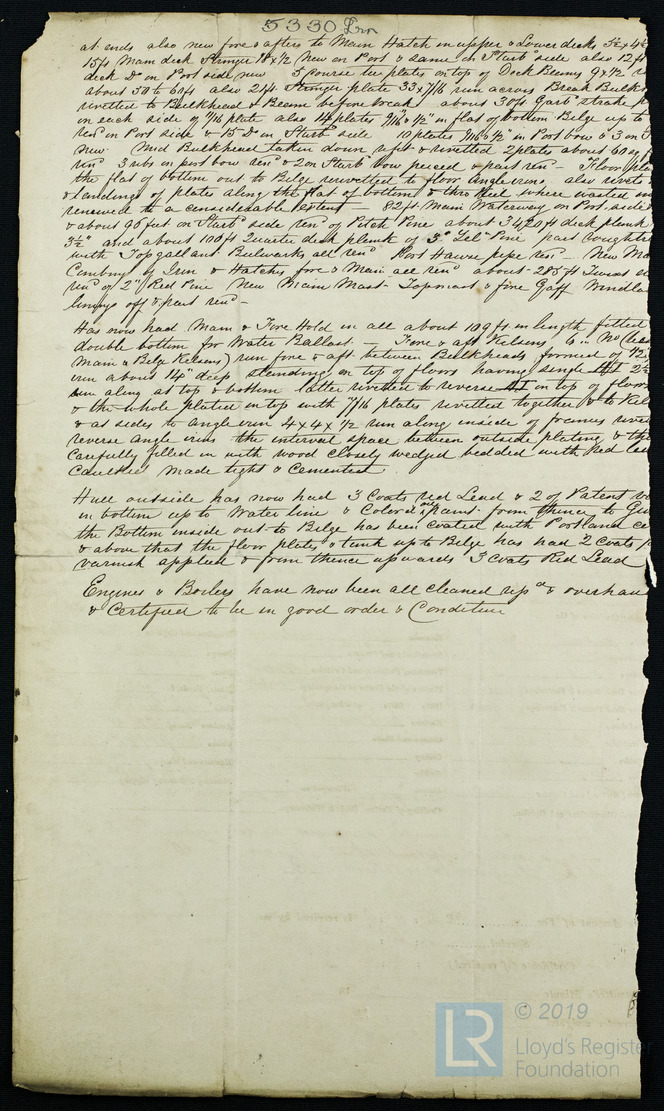 5330 Irn
at ends also new fore & afters to Main Hatch in upper & Lower decks 3½ x 4½
15 ft Main deck Stringer 18 x ½ New on Port & same on Starbd side also 12 ft
deck Do on Port side new 5 course tie plates on top of Deck Beams 9 x ½
about 50 to 60 ft also 21 ft Stringer plate 33 x 7/16 run across Break Bulk
rivetted to Bulkhead & Beam before break about 30 ft Garbd strake
on each side of 11/16 plate also 14 plates 9/16 & ½" in flat of bottom Bilge up to
rend on Port side & 15 Do on Starbd side 10 plates 9/16 & ½" in Port bow & 3 on
new Mid Bulkhead taken down refit & rivetted 2 plates about 60 sq
rend 3 ribs on port bow rend & 2 on Starbd bow pieced & part rend - Floor
the flat of bottom out to Bilge rerivetted to floor angle irons also rivets
& landings of plates along the flat of bottom & thro Keel where wasted
renewed to a considerable extent - 82 ft Main Waterway on Port side
& about 90 feet on Starbd side rend of Pitch Pine about 3420 ft deck plank
3½" and about 100 ft Quarter deck plank of 3" Yel Pine part
with Topgallant Bulwarks all rend Port Hawse pipe rend - New
Combing of Iron & Hatches fore & Main all rend about 285 ft
rend of 2" Red Pine New Main Mast Topmast & fore Gaff Windla
linings off & part rend -
Has now had Main & Fore Hold in all about 109 ft in length fitted
double bottom for Water Ballast - Fore & aft Kelsons 6 in No
Main & Bilge Kelsons) run fore & aft between Bulkheads formed of ½
iron about 14" deep standing on top of floors having single 2½
iron along at top & bottom latter rivetted to reverse on top of floors
& the whole plated on top with 7/16 plates rivetted together & to Kel
& at sides to angle iron 4 x 4 x ½ run along inside of frames rivet
reverse angle irons the interval space between outside plating & the
carefully filled in with wood closely wedged bedded with Red Lea
caulked made tight & cemented.
Hull outside has now had 3 coats red Lead & 2 of Patent
in bottom up to Water line & Colored paint from thence to Gun
the Bottom inside out to Bilge has been coated with Portland ce
& above that the floor plates & tank up to Bilge has had 2 Coats
varnish applied & from thence upwards 3 Coats Red Lead
Engines & Boilers have now been all cleaned repd & overhau
& Certified to be in good order & Condition
LR
© 2019
Lloyd's Register
Foundation